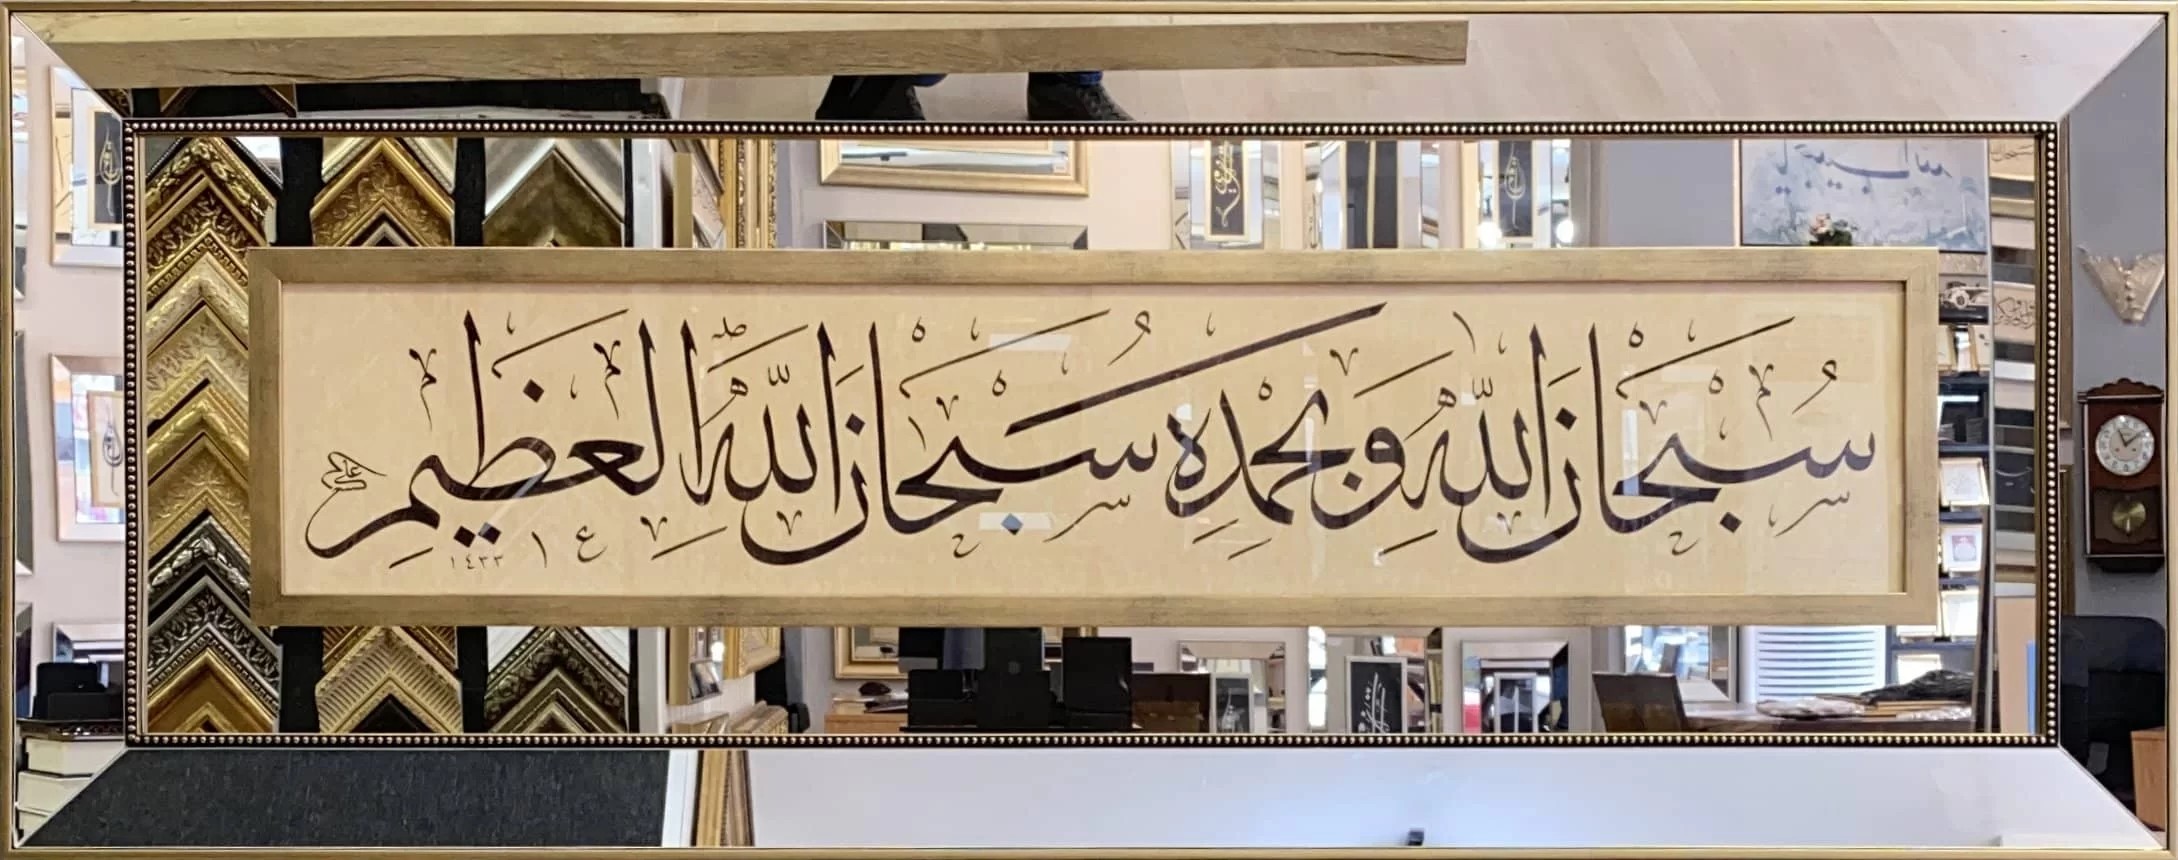 سُبْحَانَ اللّٰهِ وَبِحَمْدِهِ سُبْحَانَ اللّٰهِ الْعَظِيمِ
١٤٣٣